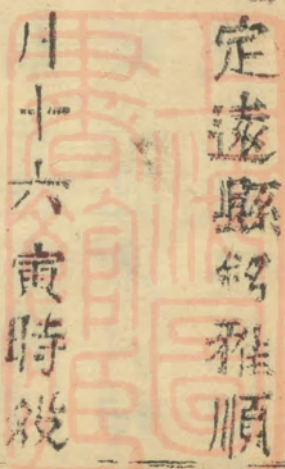 定遠縣名雅順
月十六寅時歿